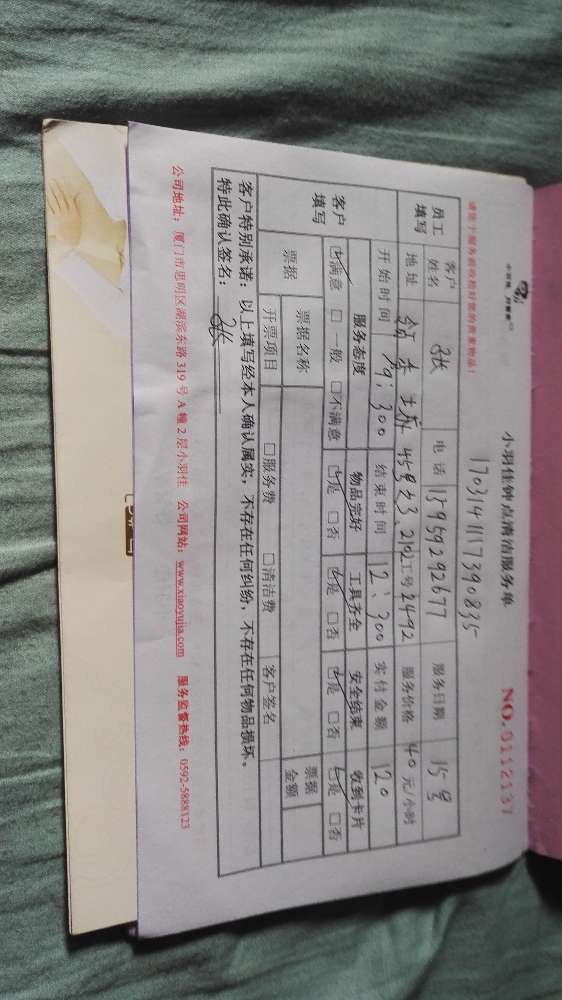 小羽佳钟点清洁服务单
NO.0112137
17031411173 90835
请您于服务前收检好您的贵重物品!
员工填写 客户姓名 张 电话 13959292677 服务日期 15号
地址 45号之3、202 工号 2492 服务价格 40元/小时
开始时间 9:300 结束时间 12:300 实付金额 120
客户填写 服务态度 物品完好 工具齐全 安全结束 收到卡片
☑满意 □一般 □不满意 ☑是 □否 ☑是 □否 ☑是 □否 ☑是 □否
票据 票据名称 票据金额
开票项目 □服务费 □清洁费 客户签名
客户特别承诺:以上填写经本人确认属实,不存在任何纠纷,不存在任何物品损坏。
特此确认签名: 张
公司地址:厦门市思明区湖滨东路319号A幢2层小羽佳 公司网站:www.xiaoyujia.com 服务监督热线:0592-5888123